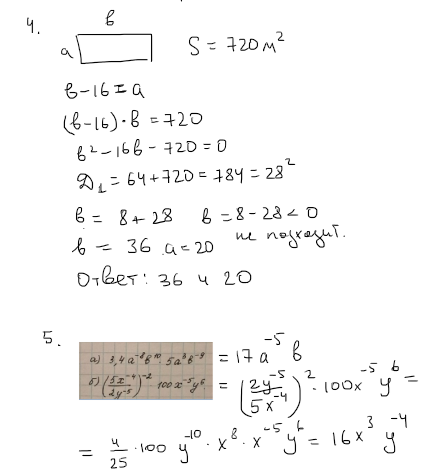 4.
в
а
S = 720 м²
в-16 = а
(в-16)·в = 720
в² - 16в - 720 = 0
Д₁ = 64 + 720 = 784 = 28²
в = 8 + 28 в = 8 - 28 < 0
в = 36 . а = 20 не подходит.
Ответ: 36 и 20
5.
а) 3,4 a⁻⁸b¹⁰ · 5a³b⁻⁹ = 17a⁻⁵ b
б) (5x⁻⁴/2y⁻⁵)⁻² · 100x⁻⁵y⁶ = (2y⁻⁵/5x⁻⁴)² · 100x⁻⁵ y⁶ =
= 4/25 · 100 y⁻¹⁰ · x⁸ · x⁻⁵ y⁶ = 16x³ y⁻⁴